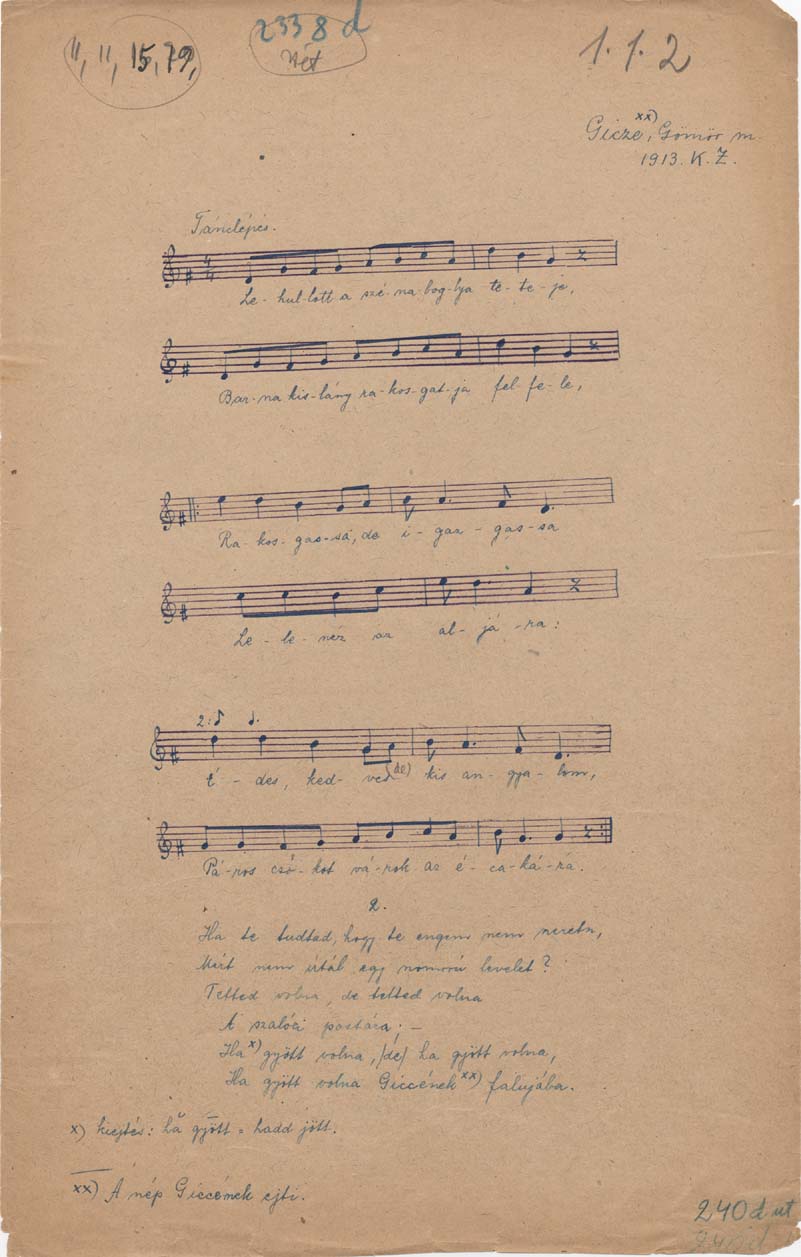 11, 11, 15, 19,
2338 d
1.1.2
Gicze,xx) Gömör m.
1913. K. Z.
Tánclépés.
Le-hul-lott a szé-na-bog-lya te-te-je,
Bar-na kis-lány ra-kos-gat-ja fel fe-le,
Ra-kos-gas-sá, de i-gaz-gas-sa
Le-le-néz az al-já-ra:
2:
É-des, ked-ves (de) kis an-gya-lom,
Pá-ros csó-kot vá-rok az é-ca-ká-ra.
2.
Ha te tudtad, hogy te engem nem szeretsz,
Mért nem írtál egy nomorú levelet?
Tetted volna, de tetted volna
A szalóci postára; —
Ha x) gyött volna, /de/ ha gyött volna,
Ha gyött volna Giccének xx) falujába.
x) kiejtés: hă gyött = hadd jött.
xx) A nép Giccének ejti.
240 d ut